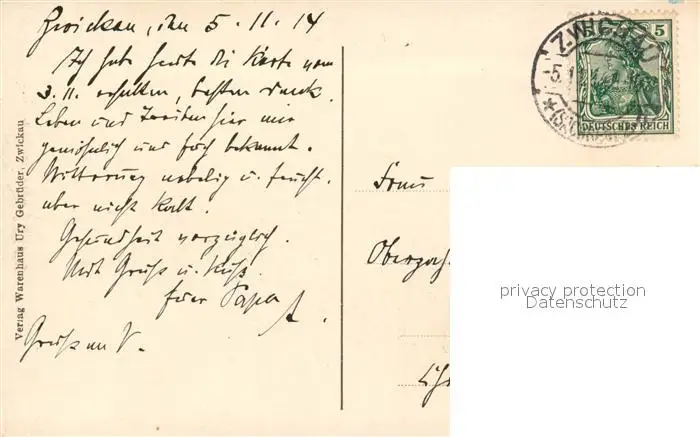 Zwickau, den 5.11.14
Ich habe heute die Karte vom
3.11. erhalten, besten Dank.
Leben und Treiben hier wie
gewöhnlich und Euch bekannt.
Witterung nebelig u. feucht,
aber nicht kalt.
Gesundheit vorzüglich.
Mit Gruß u. Kuß
Euer Papa
Gruß an V.
Verlag Warenhaus Ury Gebrüder, Zwickau
ZWICKAU
5
DEUTSCHES REICH
Frau
privacy protection
Datenschutz